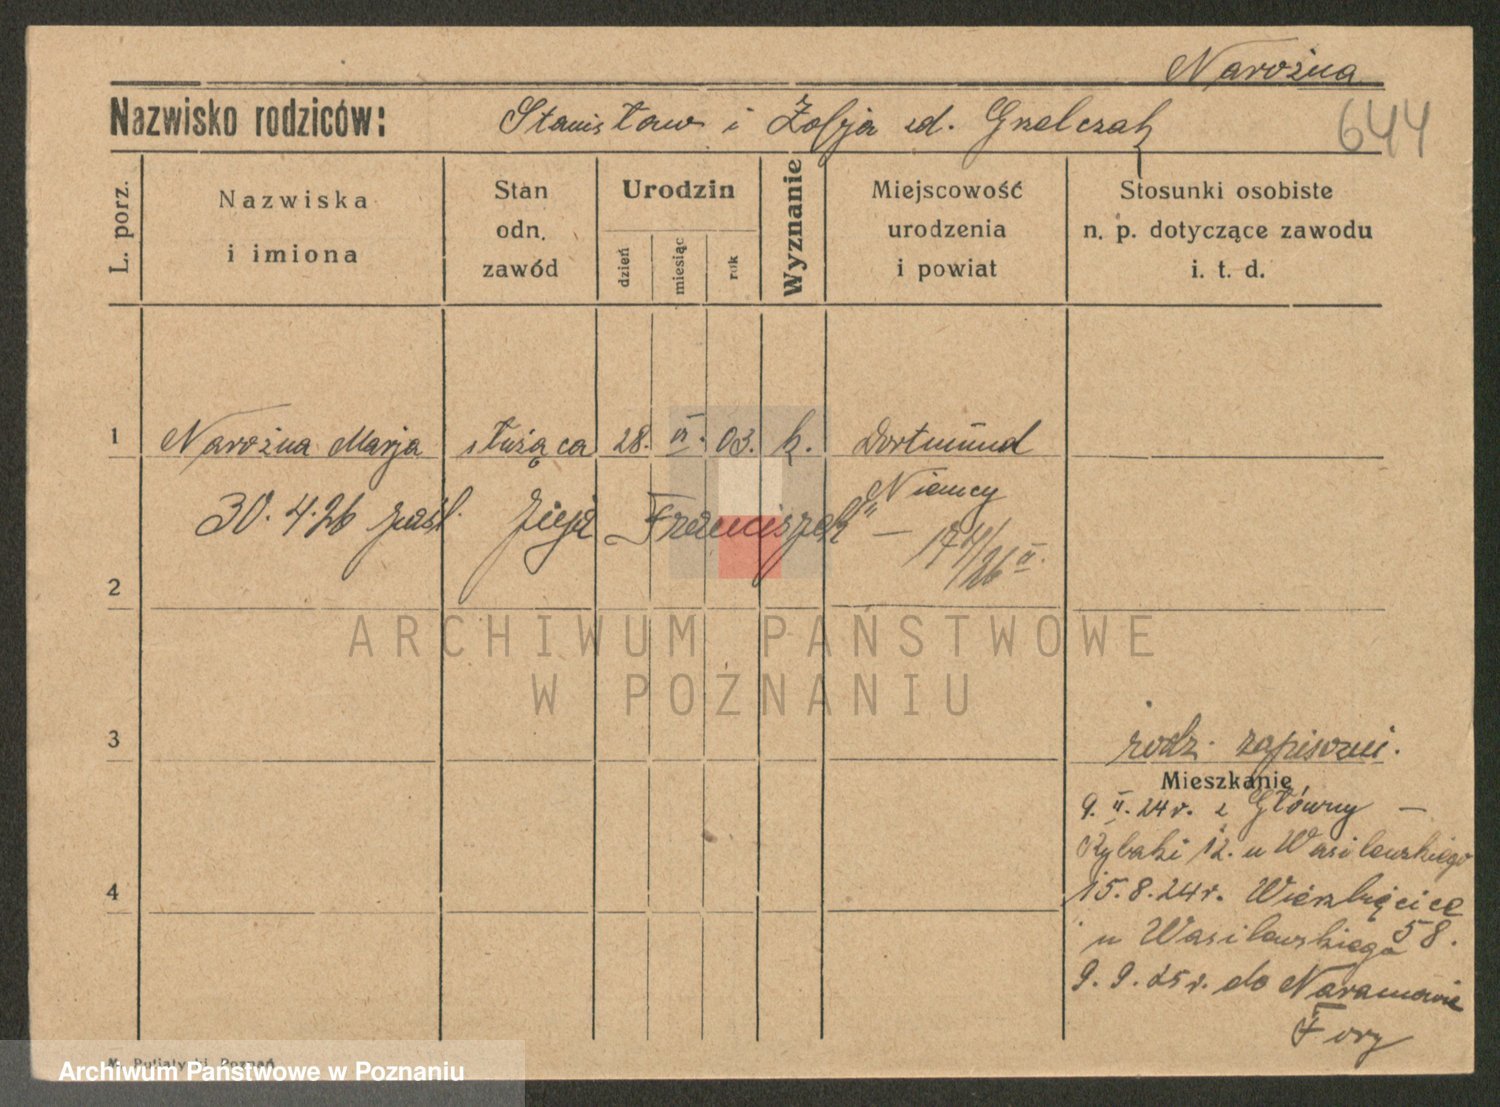 Narożna
Nazwisko rodziców: Stanisław i Zofja zd. Grelczak
644
L. porz.
Nazwiska
i imiona
Stan
odn.
zawód
Urodzin
dzień
miesiąc
rok
Wyznanie
Miejscowość
urodzenia
i powiat
Stosunki osobiste
n. p. dotyczące zawodu
i. t. d.
1 Narożna Marja służąca 28. VI. 03. k. Dortmund
Niemcy
30. 4. 26 zaśl. Zieja Franciszek" —
2
ARCHIWUM PAŃSTWOWE
W POZNANIU
3
rodz. zapisani.
Mieszkanie
9. II. 24 r. z Główny —
Rybaki 12. u Wasilewskiego
4
15. 8. 24 r. Wierzbięcice
58.
u Wasilewskiego
9. 9. 25 r. do Naramowic
Fory
M. Putiatycki, Poznań
Archiwum Państwowe w Poznaniu